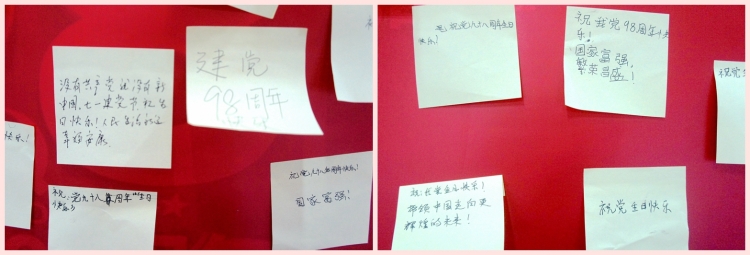 没有共产党就没有新
中国,七一建党节祝生
日快乐!人民生活永远
幸福安康
建党
98周年
快乐!
祝:党九十八周年生日
快乐
祝:党九十八周年快乐!
国家富强!
祝党九十八周年生日
快乐!
祝我党98周年快
乐!
国家富强,
繁荣昌盛!
祝党
祝:我党生日快乐!
带领中国走向更
辉煌的未来!
祝党生日快乐